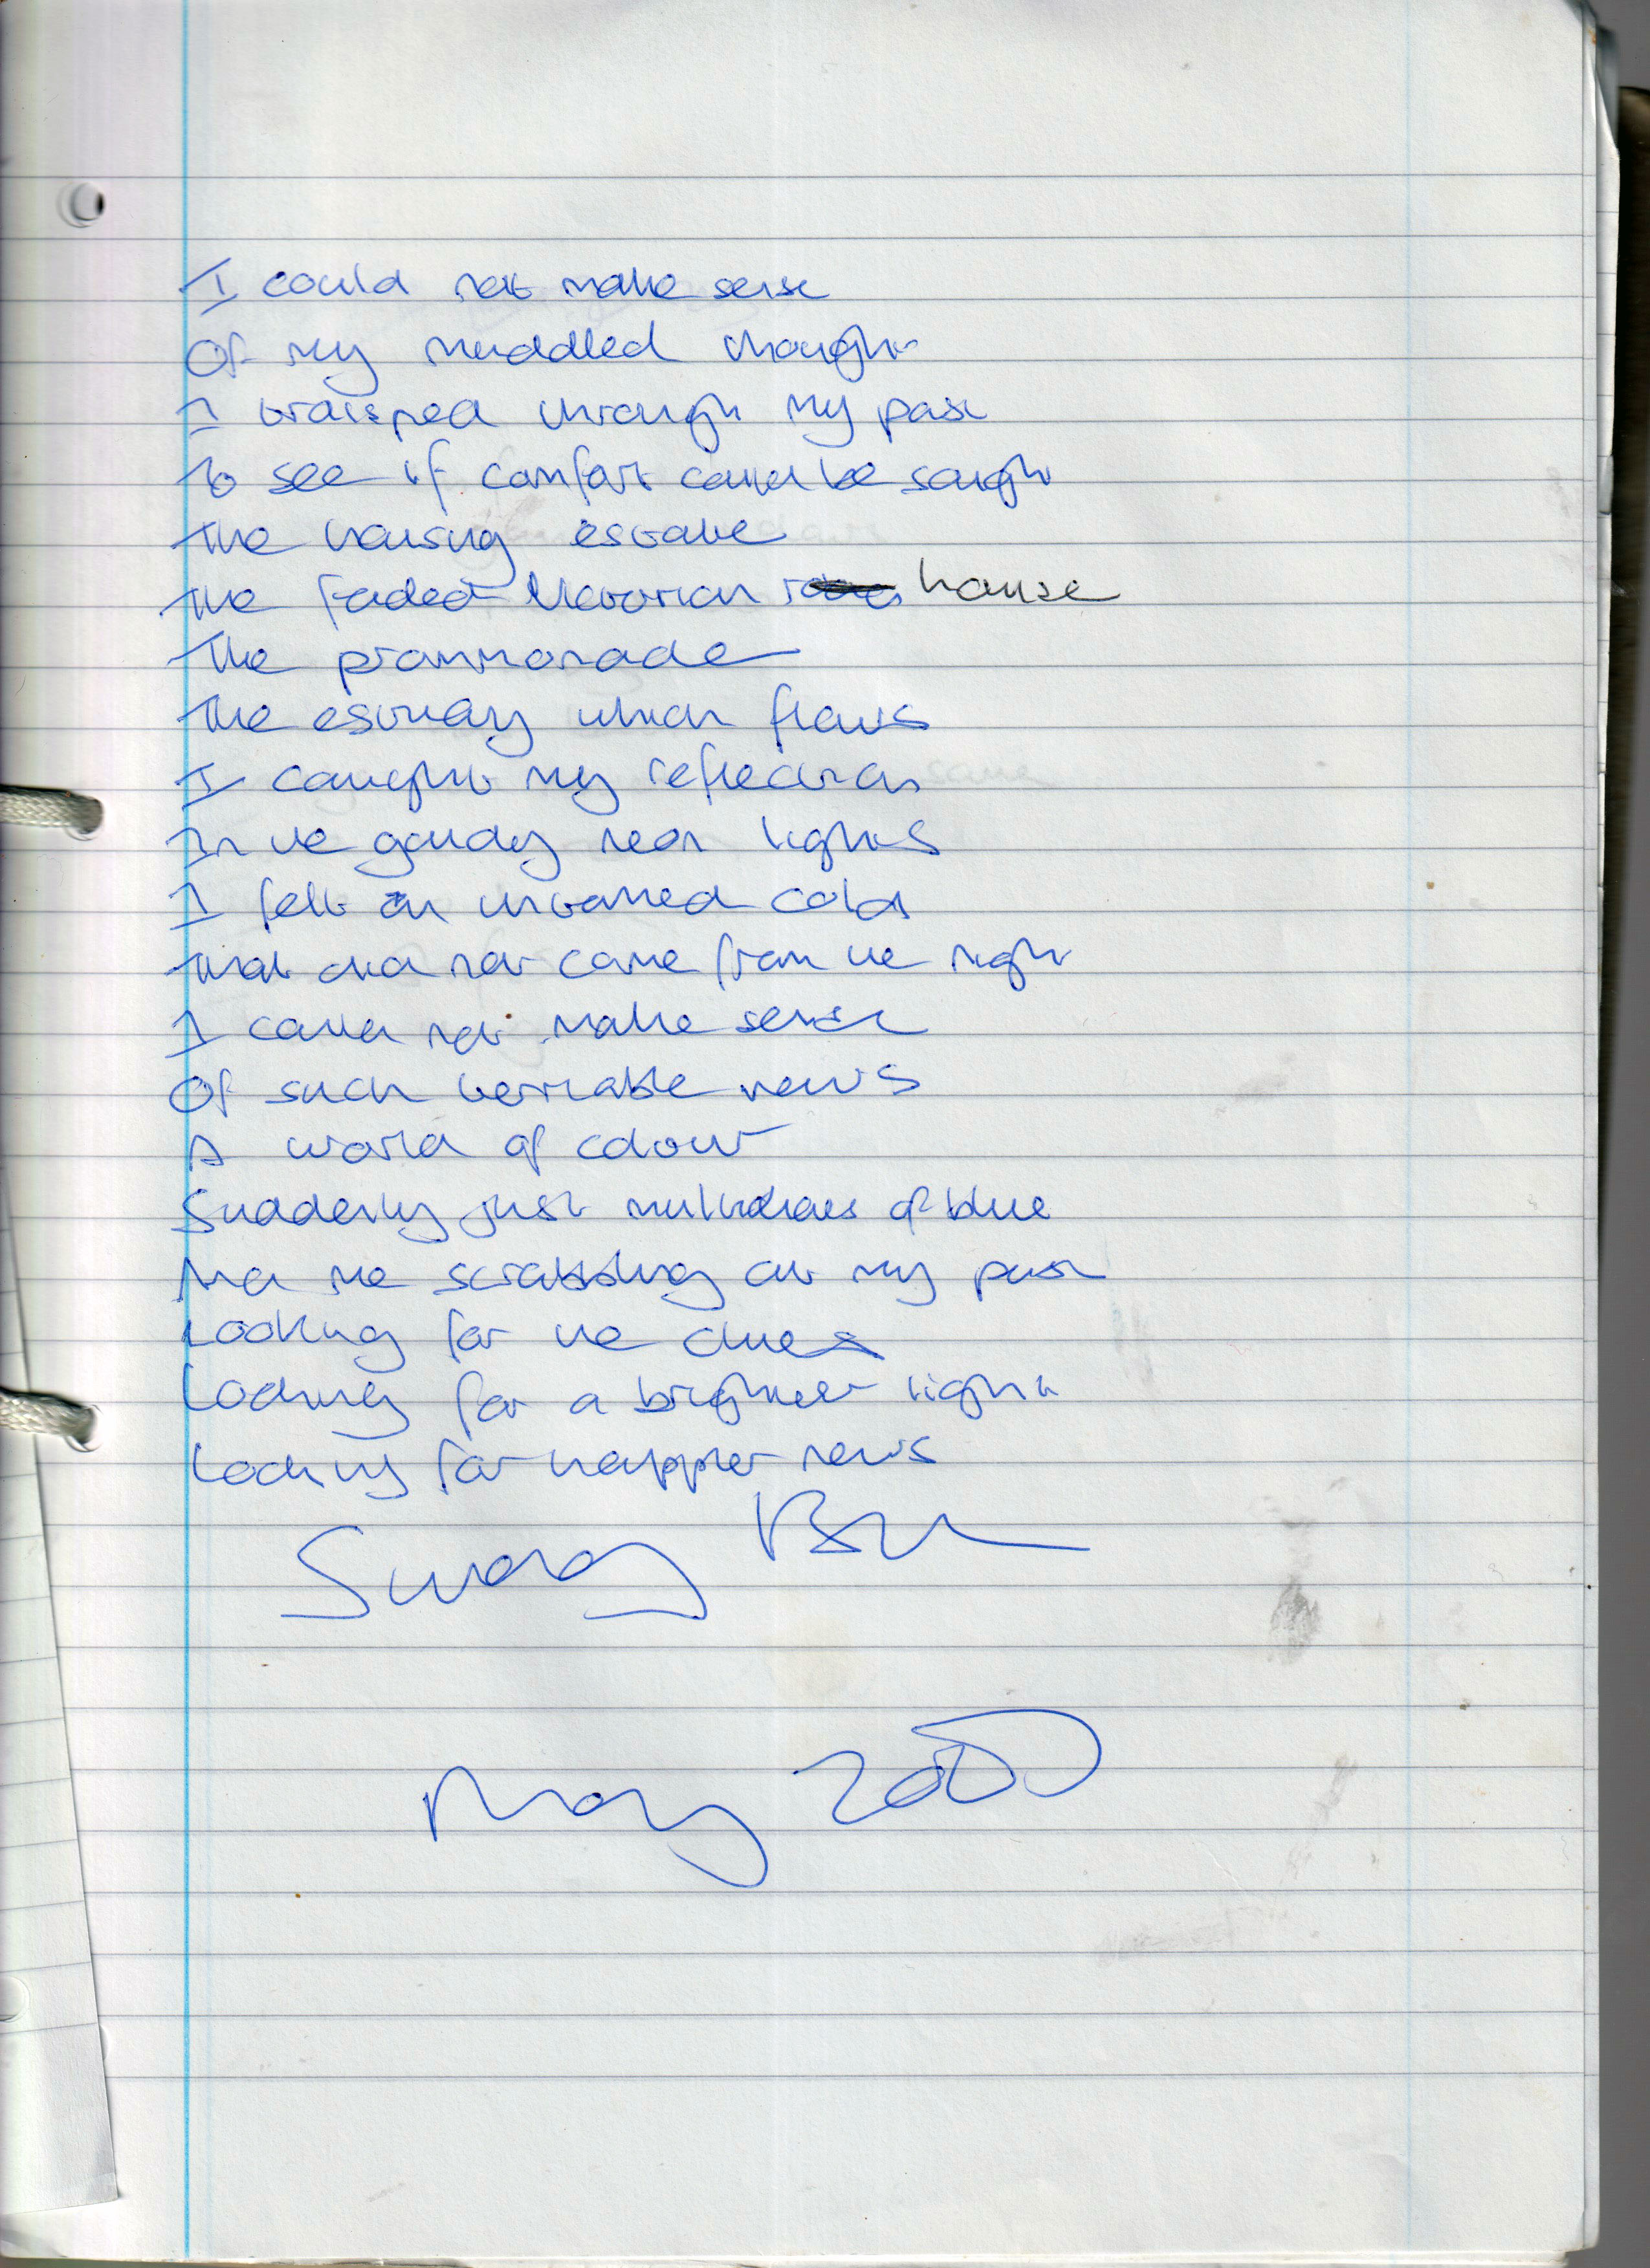 I could not make sense
Of my muddled thoughts
I traipsed through my past
To see if comfort could be sought
The housing estate
The faded Victorian house
The prommonade
The estuary which flows
I caught my reflection
In the gaudy neon lights
I felt an untamed cold
That did not come from the night
I could not make sense
Of such terrible news
A world of colour
Suddenly just multitudes of blue
And me scrabbling at my past
Looking for the clues
Looking for a brighter light
Looking for happier news
May 2000